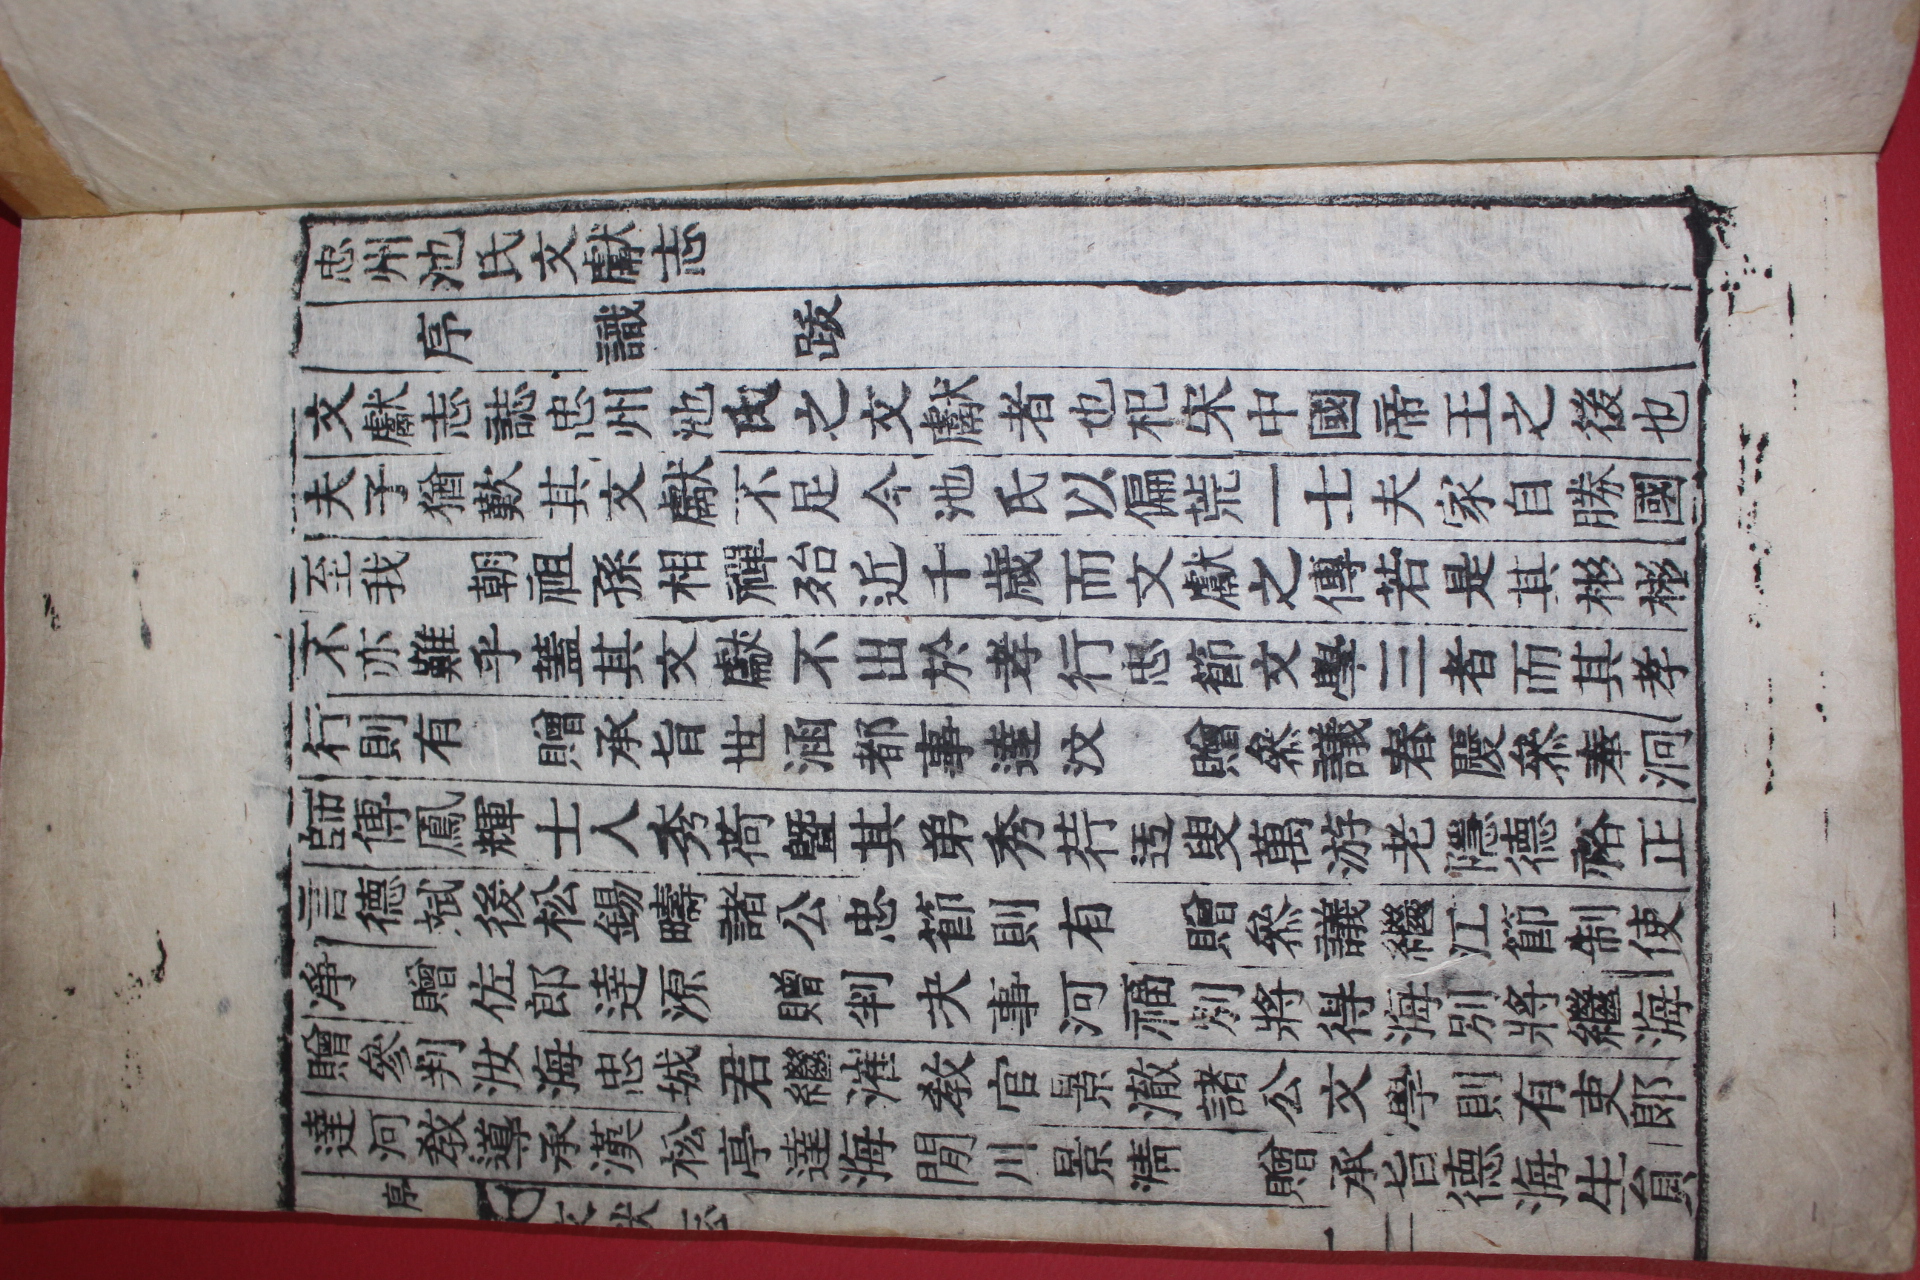 忠州池氏文獻志
序 識 跋
文獻志誌忠州池氏之文獻者也杞宋中國帝王之後也
夫子猶歎其文獻不足今池氏以偏荒一士夫家自勝國
至我 朝祖孫相禪殆近千歲而文獻之傳若是其彬彬
不亦難乎蓋其文獻不出於孝行忠節文學三者而其孝
行則有 贈承旨世涵都事達汶 贈參議春慶參奉泂
師傅鳳輝士人秀荷曁其弟秀荇迃叟萬游老隱德裕正
言德斌後松錫疇諸公忠節則有 贈參議繼江節制使
淨 贈佐郎達源 贈判决事河福別將得海別將繼海
贈參判汝海忠城君繼漼敎官景澈諸公文學則有吏郎
達河敎導承漢松亭達海閒川景淸 贈承旨德海生員
序
文獻志
一